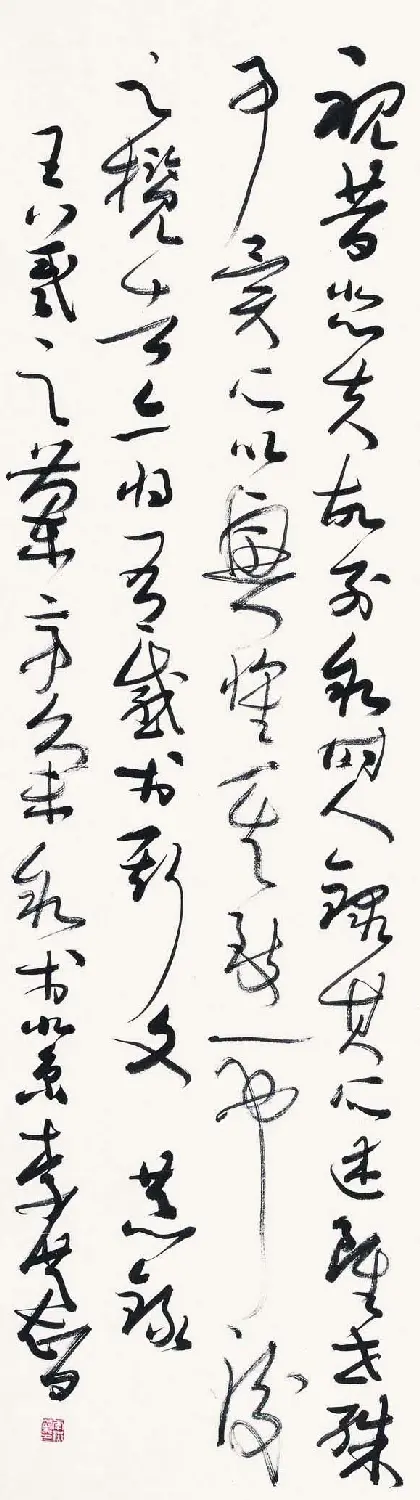 視昔悲夫故列叙時人錄其所述雖世殊
事異所以興懷其致一也後
之攬者亦將有感於斯文 恭錄
王羲之蘭亭 於北京李